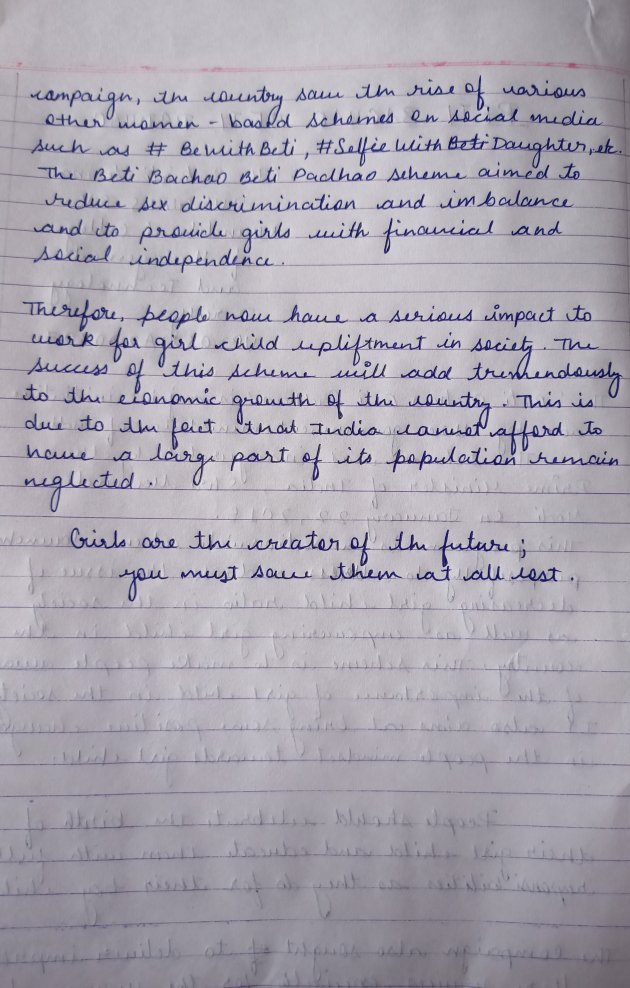 campaign, the country saw the rise of various
other women - based schemes on social media
such as # BewithBeti, #Selfie With Beti Daughter, etc.
The Beti Bachao Beti Padhao scheme aimed to
reduce sex discrimination and imbalance
and to provide girls with financial and
social independence.
Therefore, people now have a serious impact to
work for girl child upliftment in society. The
success of this scheme will add tremendously
to the economic growth of the country. This is
due to the fact that India cannot afford to
have a large part of its population remain
neglected.
Girls are the creator of the future;
you must save them at all cost.